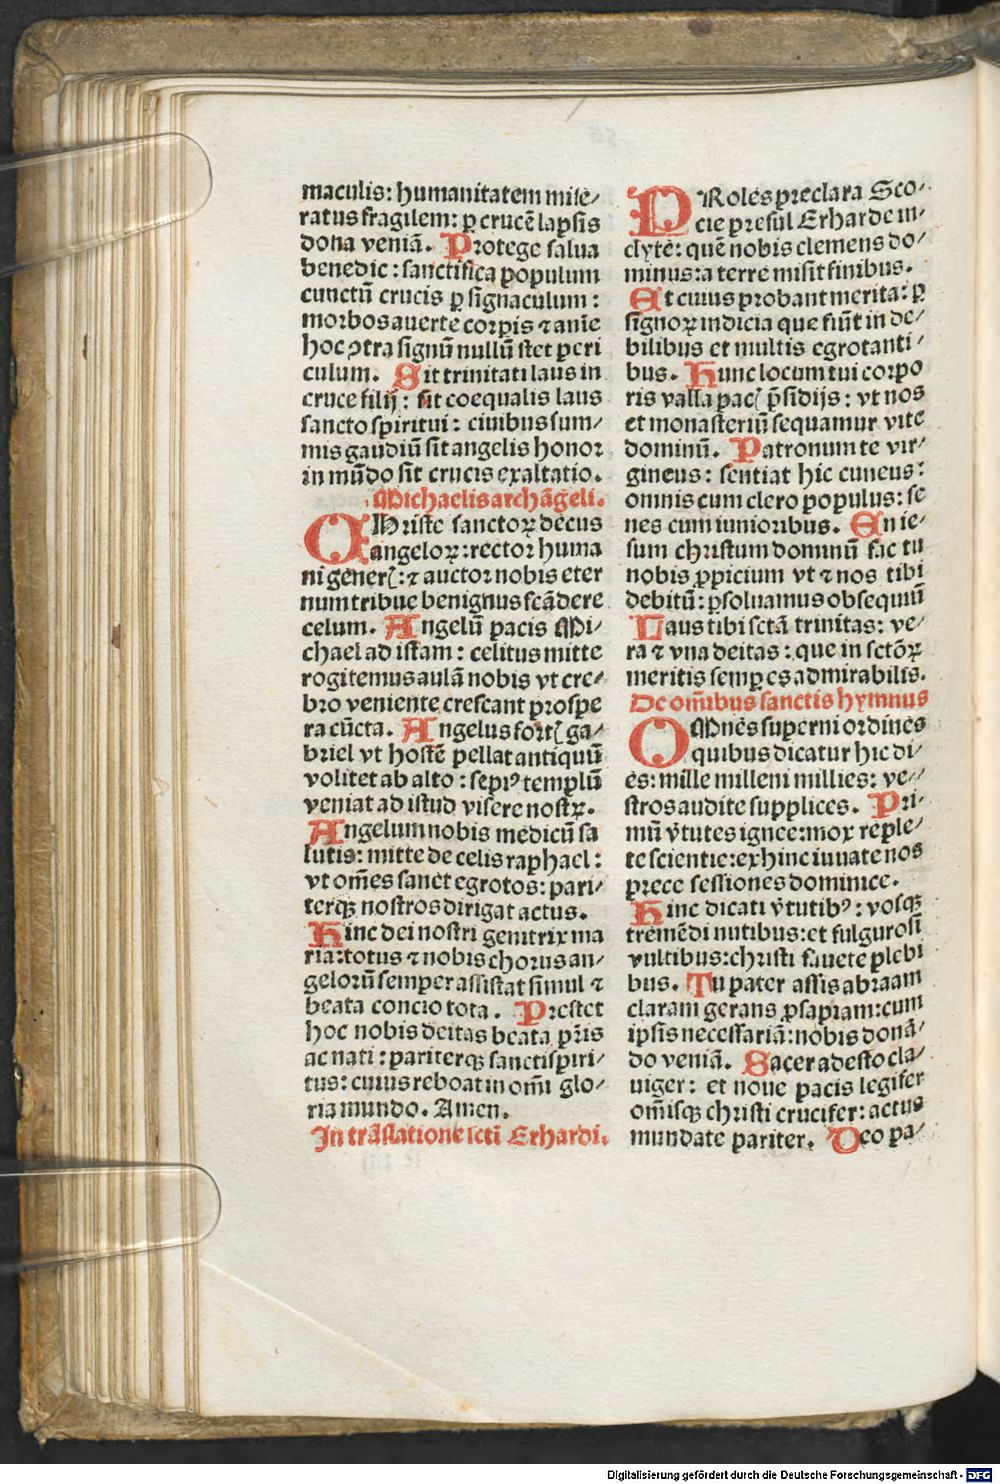 maculis: humanitatem mise/
ratus fragilem: ꝑ crucē lapsis
dona veniā. Protege salua
benedic: sanctifica populum
cunctū crucis ꝑ signaculum:
morbos auerte corꝑis ⁊ anīe
hoc ꝯtra signū nullū stet peri
culum. Sit trinitati laus in
cruce filij: sit coequalis laus
sancto spiritui: ciuibus sum/
mis gaudiū sit angelis honor
in mūdo sit crucis exaltatio.
Michaelis archāgeli.
CHriste sanctoꝝ decus
angeloꝝ: rector huma
ni generꝭ: ⁊ auctor nobis eter
num tribue benignus scādere
celum. Angelū pacis Mi/
chael ad istam: celitus mitte
rogitemus aulā nobis vt cre/
bro veniente crescant prospe
ra cūcta. Angelus fortꝭ ga/
briel vt hostē pellat antiquū
volitet ab alto: sepiꝰ templū
veniat ad istud visere nostꝝ.
Angelum nobis medicū sa
lutis: mitte de celis raphael:
vt om̄es sanet egrotos: pari/
terqꝫ nostros dirigat actus.
Hinc dei nostri genitrix ma
ria: totus ⁊ nobis chorus an/
gelorū semper assistat simul ⁊
beata concio tota. Prestet
hoc nobis deitas beata pr̄is
ac nati: pariterqꝫ sancti spiri/
tus: cuius reboat in om̄i glo/
ria mundo. Amen.
In trāslatione scti Erhardi.
PRoles preclara Sco/
cie presul Erharde in/
clyte: quē nobis clemens do/
minus: a terre misit finibus.
Et cuius probant merita: ꝑ
signoꝝ indicia que fiūt in de/
bilibus et multis egrotanti/
bus. Hunc locum tui corpo
ris valla pacꝭ p̄sidijs: vt nos
et monasteriū sequamur vite
dominū. Patronum te vir/
gineus: sentiat hic cuneus:
omnis cum clero populus: se
nes cum iunioribus. En ie/
sum christum dominū fac tu
nobis ꝓpicium vt ⁊ nos tibi
debitū: ꝑsoluamus obsequiū
Laus tibi sctā trinitas: ve/
ra ⁊ vna deitas: que in sctōꝝ
meritis semꝑ es admirabilis.
De om̄ibus sanctis hymnus
OMnes superni ordines
quibus dicatur hic di/
es: mille milleni millies: ve/
stros audite supplices. Pri/
mū v̄tutes ignee: mox reple/
te scientie: exhinc iuuate nos
prece sessiones dominice.
Hinc dicati v̄tutibꝰ: vosqꝫ
tremēdi nutibus: et fulgurosi
vultibus: christi fauete plebi
bus. Tu pater assis abraam
claram gerans ꝓsapiam: cum
ipsis necessariā: nobis donā/
do veniā. Sacer adesto cla/
uiger: et noue pacis legifer
om̄isqꝫ christi crucifer: actus
mundate pariter. Deo pa/
Digitalisierung gefördert durch die Deutsche Forschungsgemeinschaft - DFG